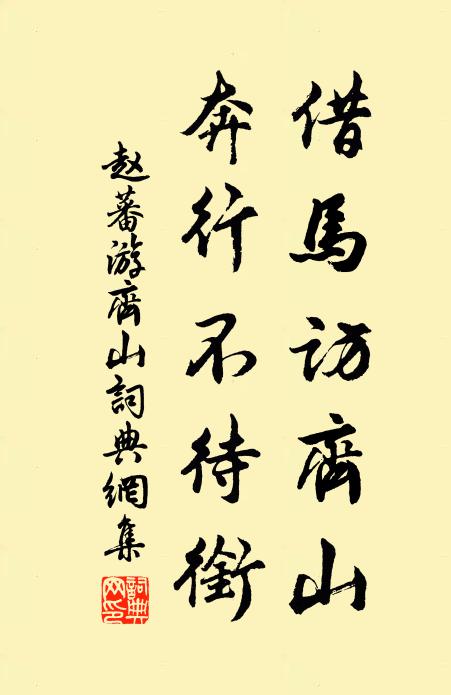 借馬訪齊山
奔行不待銜
赵蕃游齊山詞典網集
詞典网印